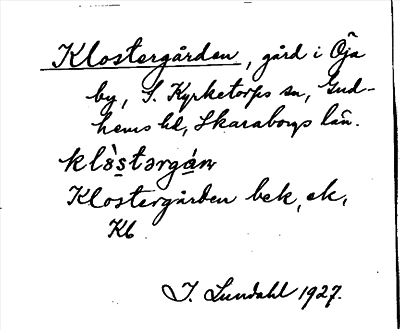 Klostergården, gård i Öja
by, S. Kyrketorps sn, Gud-
hems hd, Skaraborgs län.
klòstərgán
Klostergården bek, ek,
Kb
I. Lundahl 1927.